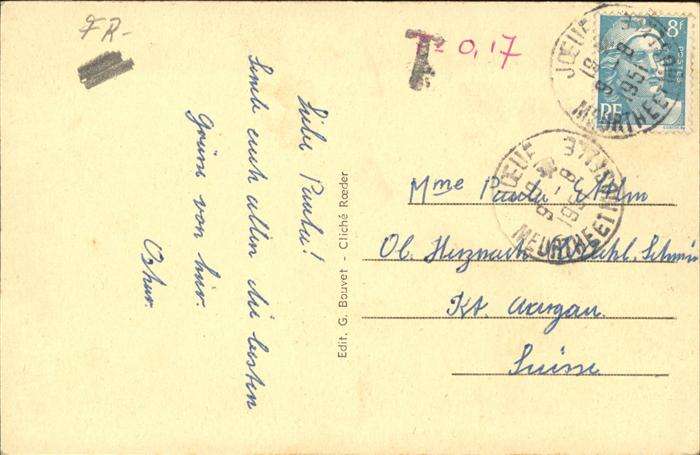 FR-
T 0,17
8f
POSTES
RF
JŒUF
MEURTHE ET MOSELLE
JŒUF
MEURTHE ET MOSELLE
Liebe Paula!
Sende euch allen die besten
Grüsse von hier.
Oskar.
Edit. G. Bouvet - Cliché Rœder
Mme Paula
Ob. Herznach
Kt. Aargau.
Suisse